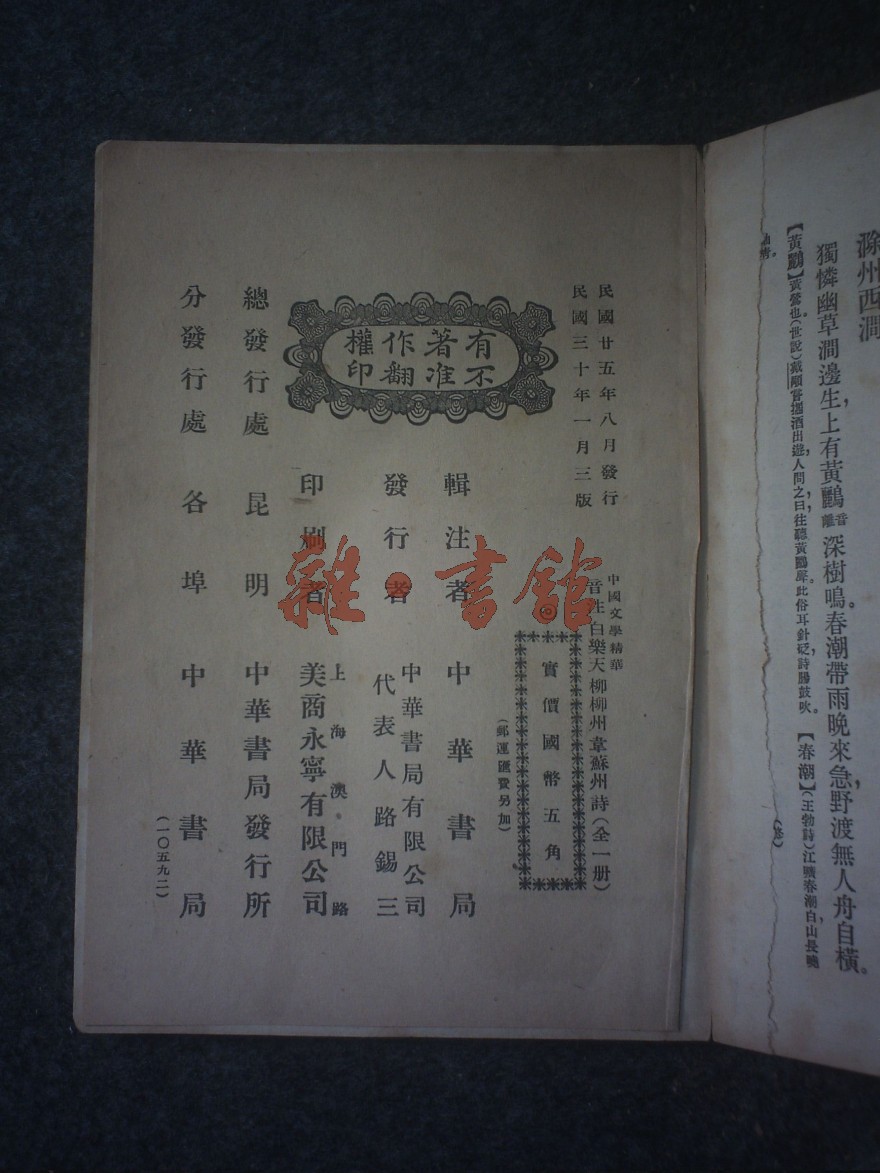 滁州西澗
獨憐幽草澗邊生，上有黃鸝音離深樹鳴。春潮帶雨晚來急，野渡無人舟自橫。
【黃鸝】黃鶯也。（世說）戴顒嘗攜酒出遊，人問之，曰往聽黃鸝聲。此俗耳針砭，詩腸鼓吹。【春潮】（王勃詩）江曠春潮白，山長曉
岫青。
（終）
民國廿五年八月發行
民國三十年一月三版
有著作權
不准翻印
中國文學精華
音注白樂天柳柳州韋蘇州詩（全一册）
實價國幣五角
（郵運匯費另加）
輯注者 中華書局
發行者 中華書局有限公司
代表人路錫三
印刷者 上海澳門路
美商永寧有限公司
總發行處 昆明 中華書局發行所
分發行處 各埠 中華書局
（一〇五九二）
雜·書館